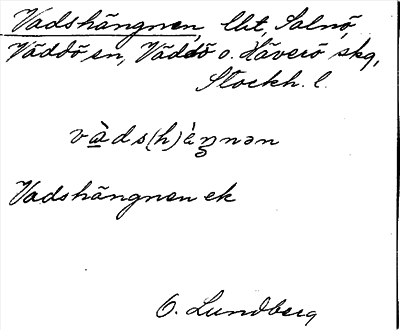 Vadshängnen, lht, Salnö,
Väddö sn, Väddö o. Häverö skg,
Stockh. l.
vàds(h)èŋnən
Vadshängnen ek
O. Lundberg